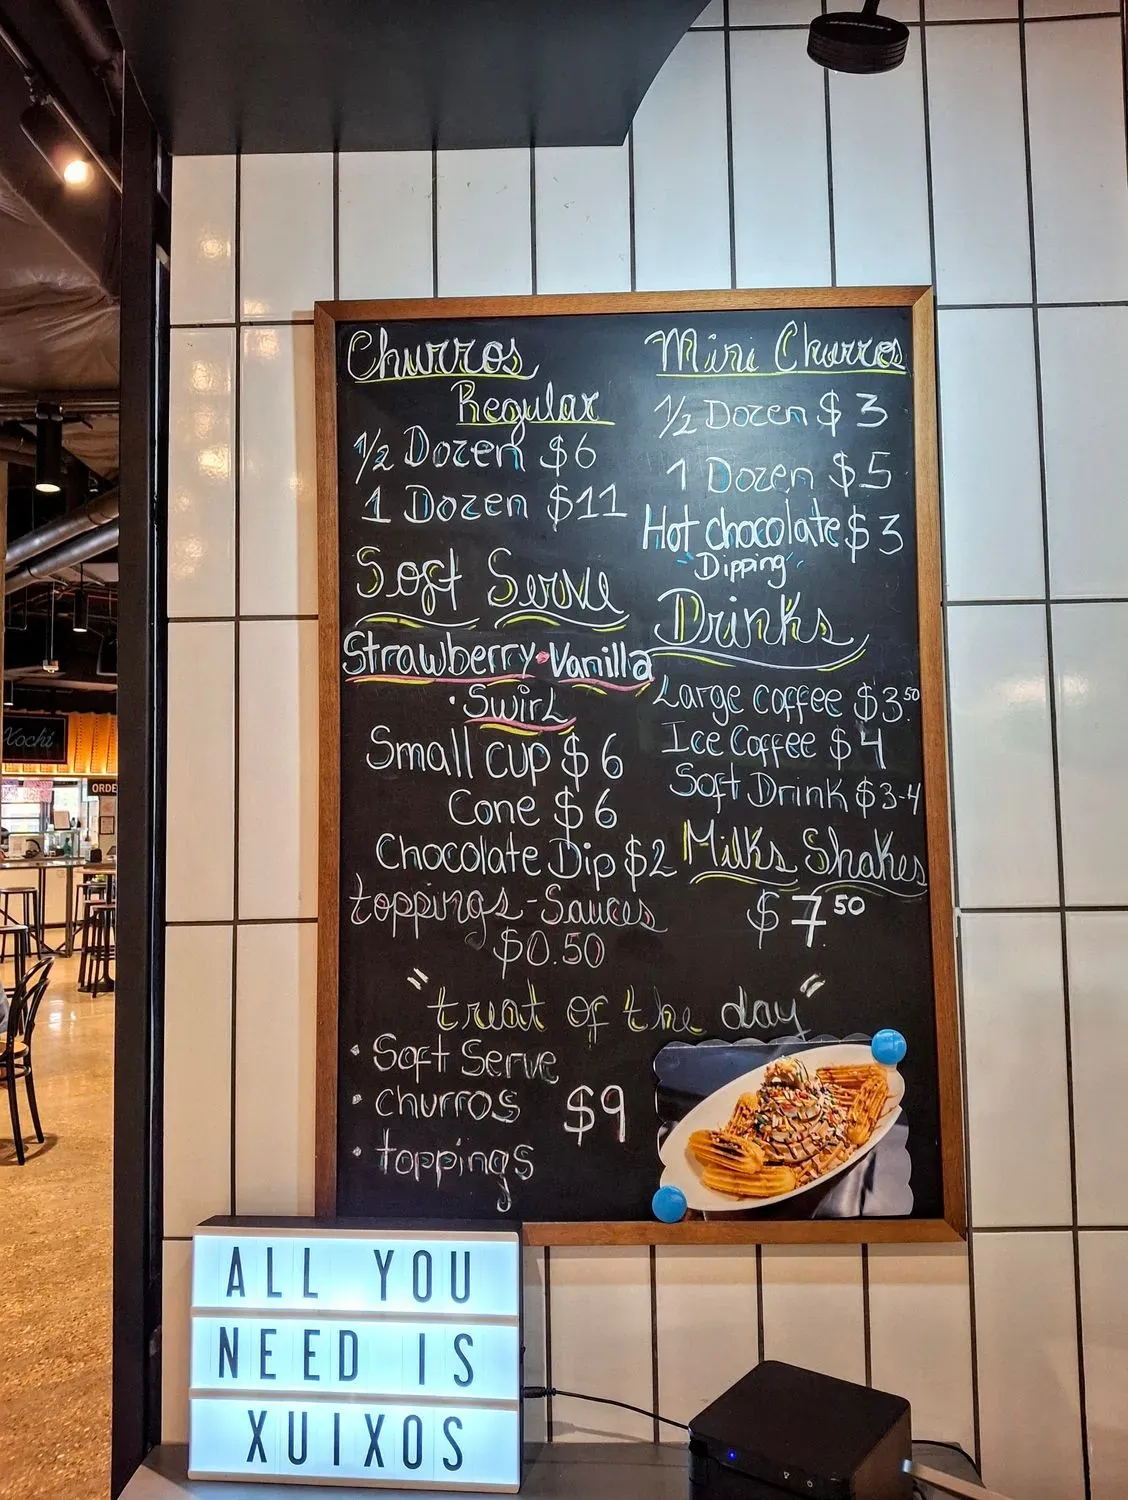 Churros
Regular
1/2 Dozen $6
1 Dozen $11
Soft Serve
Strawberry • Vanilla
• Swirl
Small cup $6
Cone $6
Chocolate Dip $2
toppings - Sauces
$0.50
Mini Churros
1/2 Dozen $3
1 Dozen $5
Hot chocolate $3
"Dipping"
Drinks
Large coffee $3.50
Ice Coffee $4
Soft Drink $3-4
Milks Shakes
$7.50
"treat of the day"
• Soft Serve
• churros $9
• toppings
ALL YOU
NEED IS
XUIXOS
Xochi
ORDE